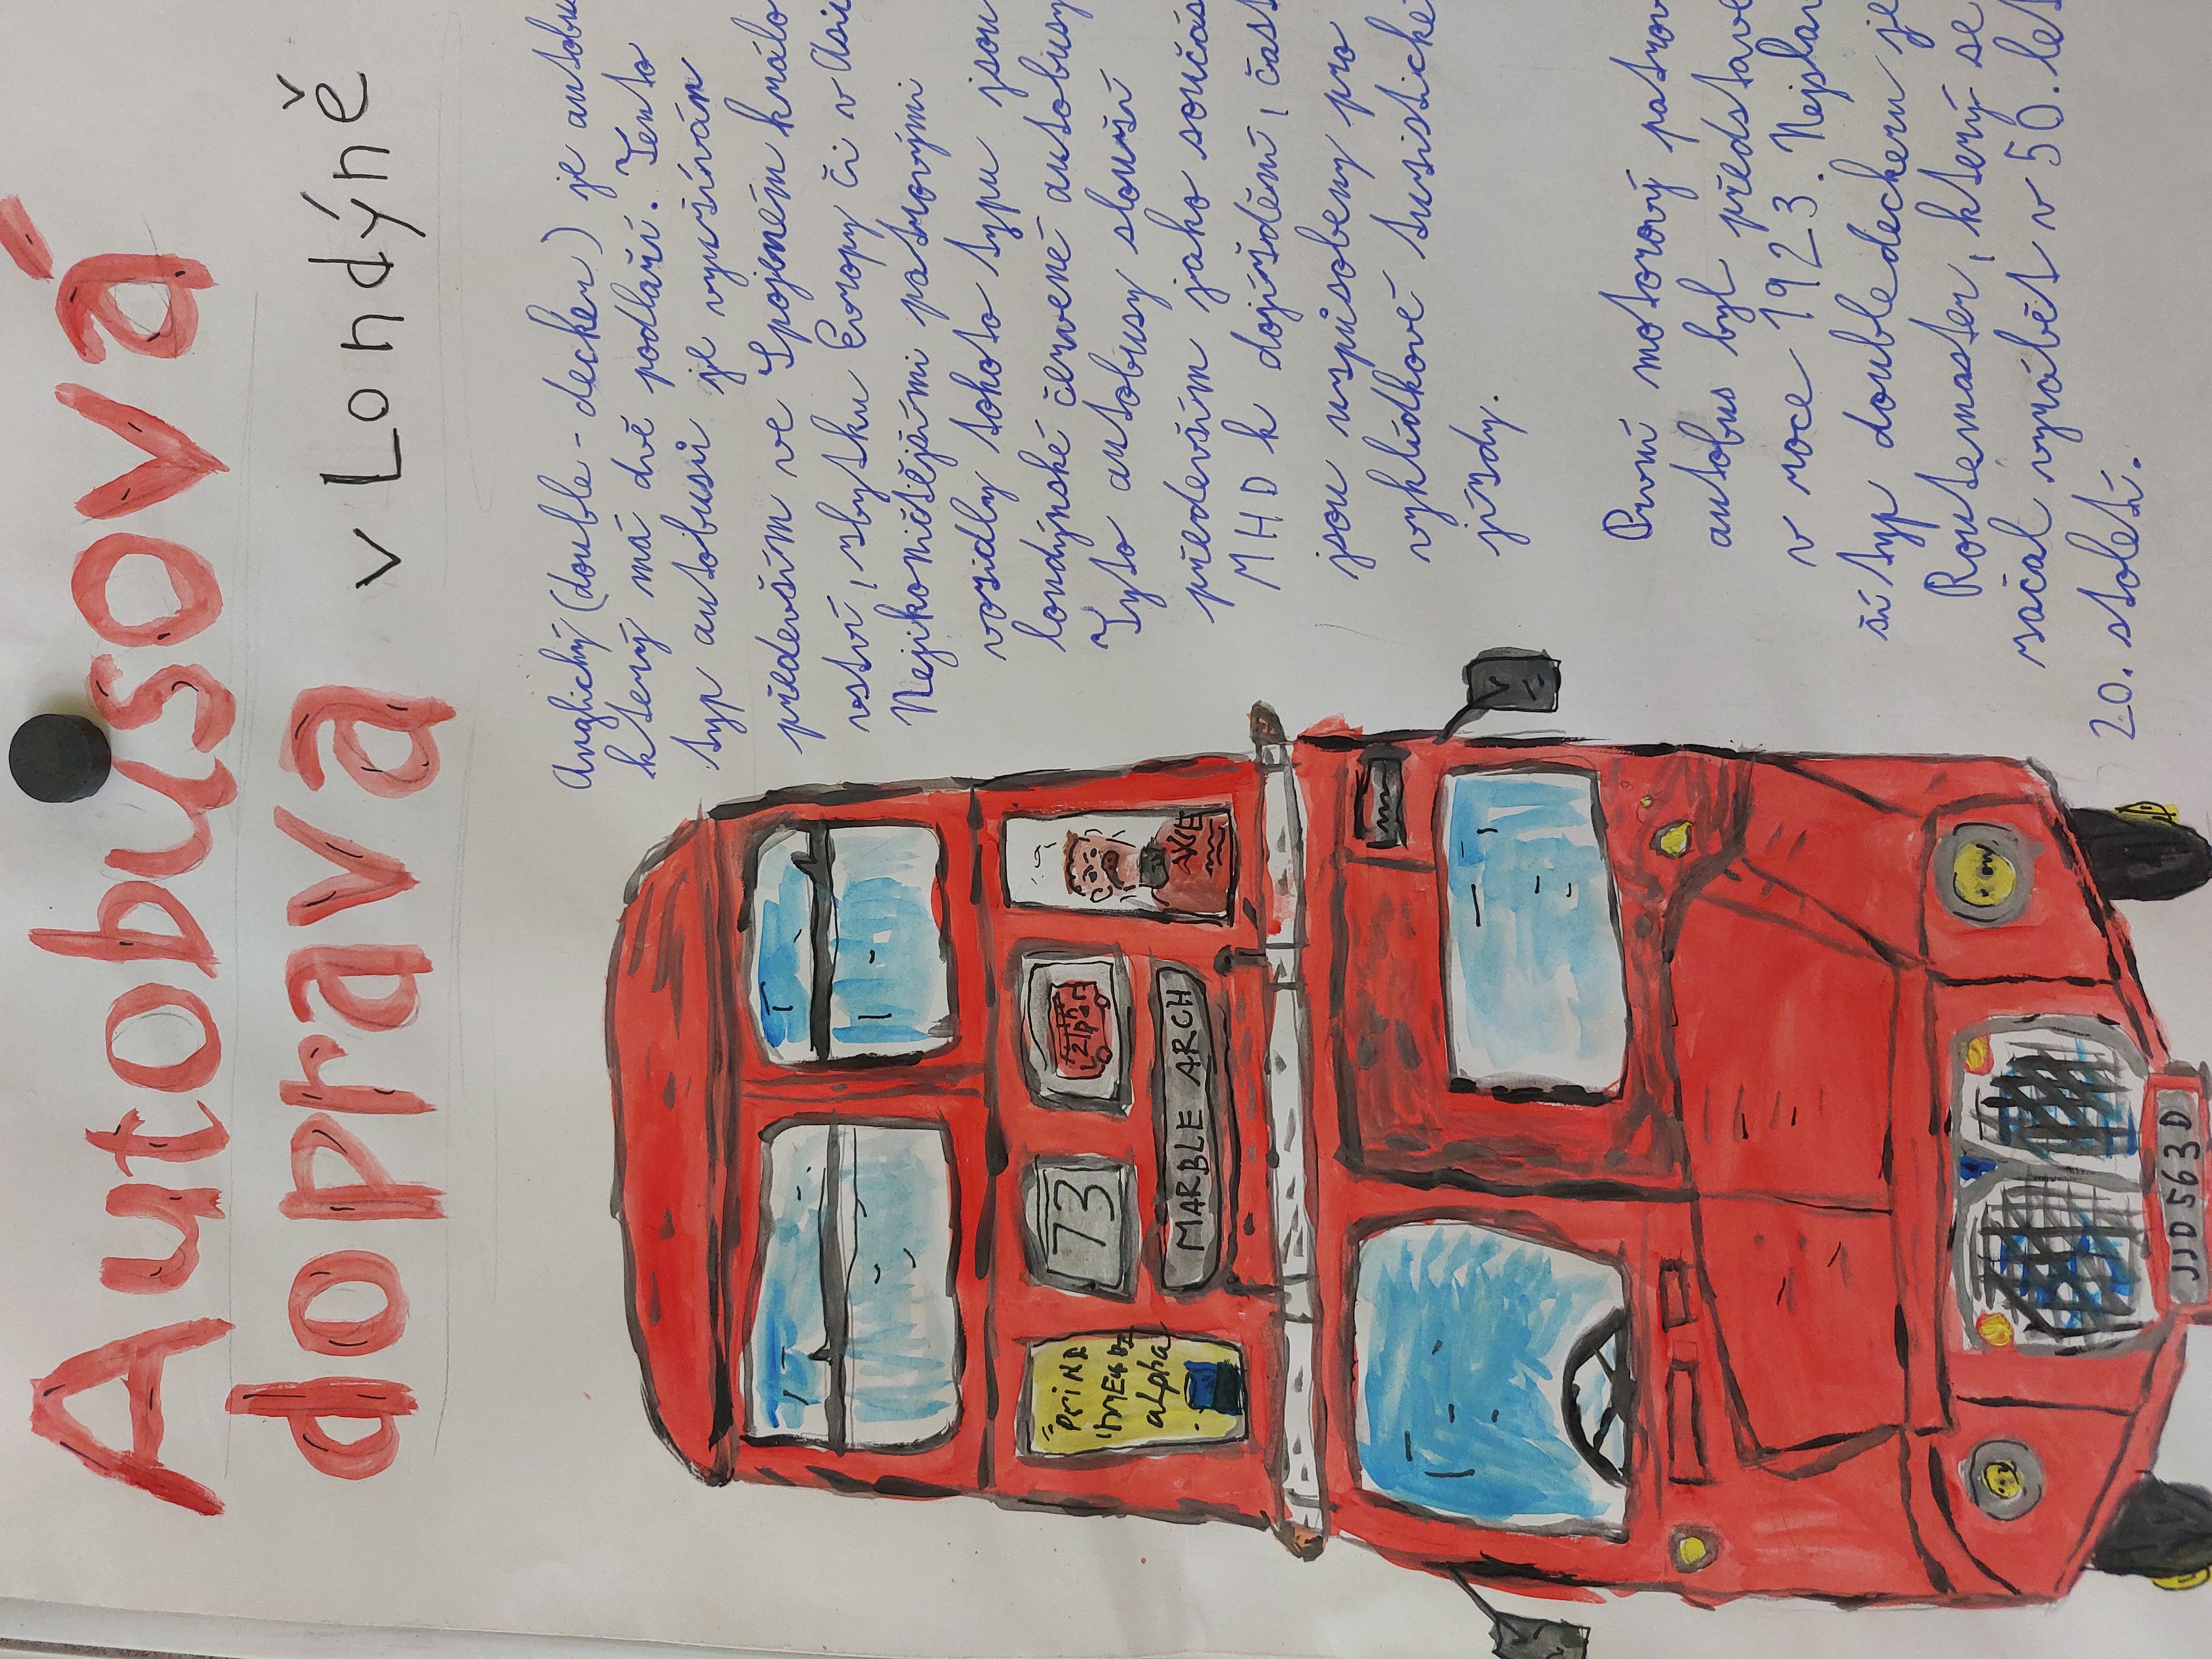 Autobusová
doprava
v Londýně
Anglický (double-decker) je autobu
který má dvě podlaží. Tento
typ autobusů je využíván
především ve Spojeném králo
vství, zbytku Evropy či v Asii
Nejikoničtějšími patrovými
vozidly tohoto typu jsou
londýnské červené autobusy
Tyto autobusy slouží
především jako součás
MHD k dojíždění, čast
jsou uzpůsobeny pro
vyhlídkové turistické
jízdy.
První motorový patrov
autobus byl představe
v roce 1923. Nejslav
ší typ doubledeckeru je
Routemaster, který se
začal vyrábět v 50. let
20. století.
73
MARBLE ARCH
alpha
JJD563D